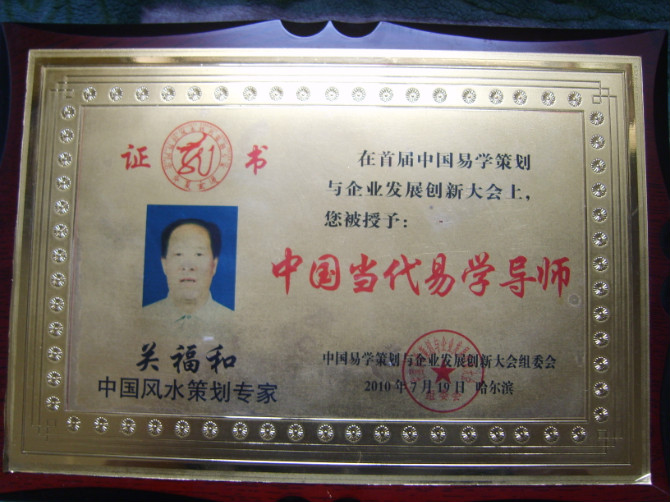 证 书
关福和
中国风水策划专家
在首届中国易学策划
与企业发展创新大会上,
您被授予:
中国当代易学导师
中国易学策划与企业发展创新大会组委会
2010年7月19日 哈尔滨
组委会